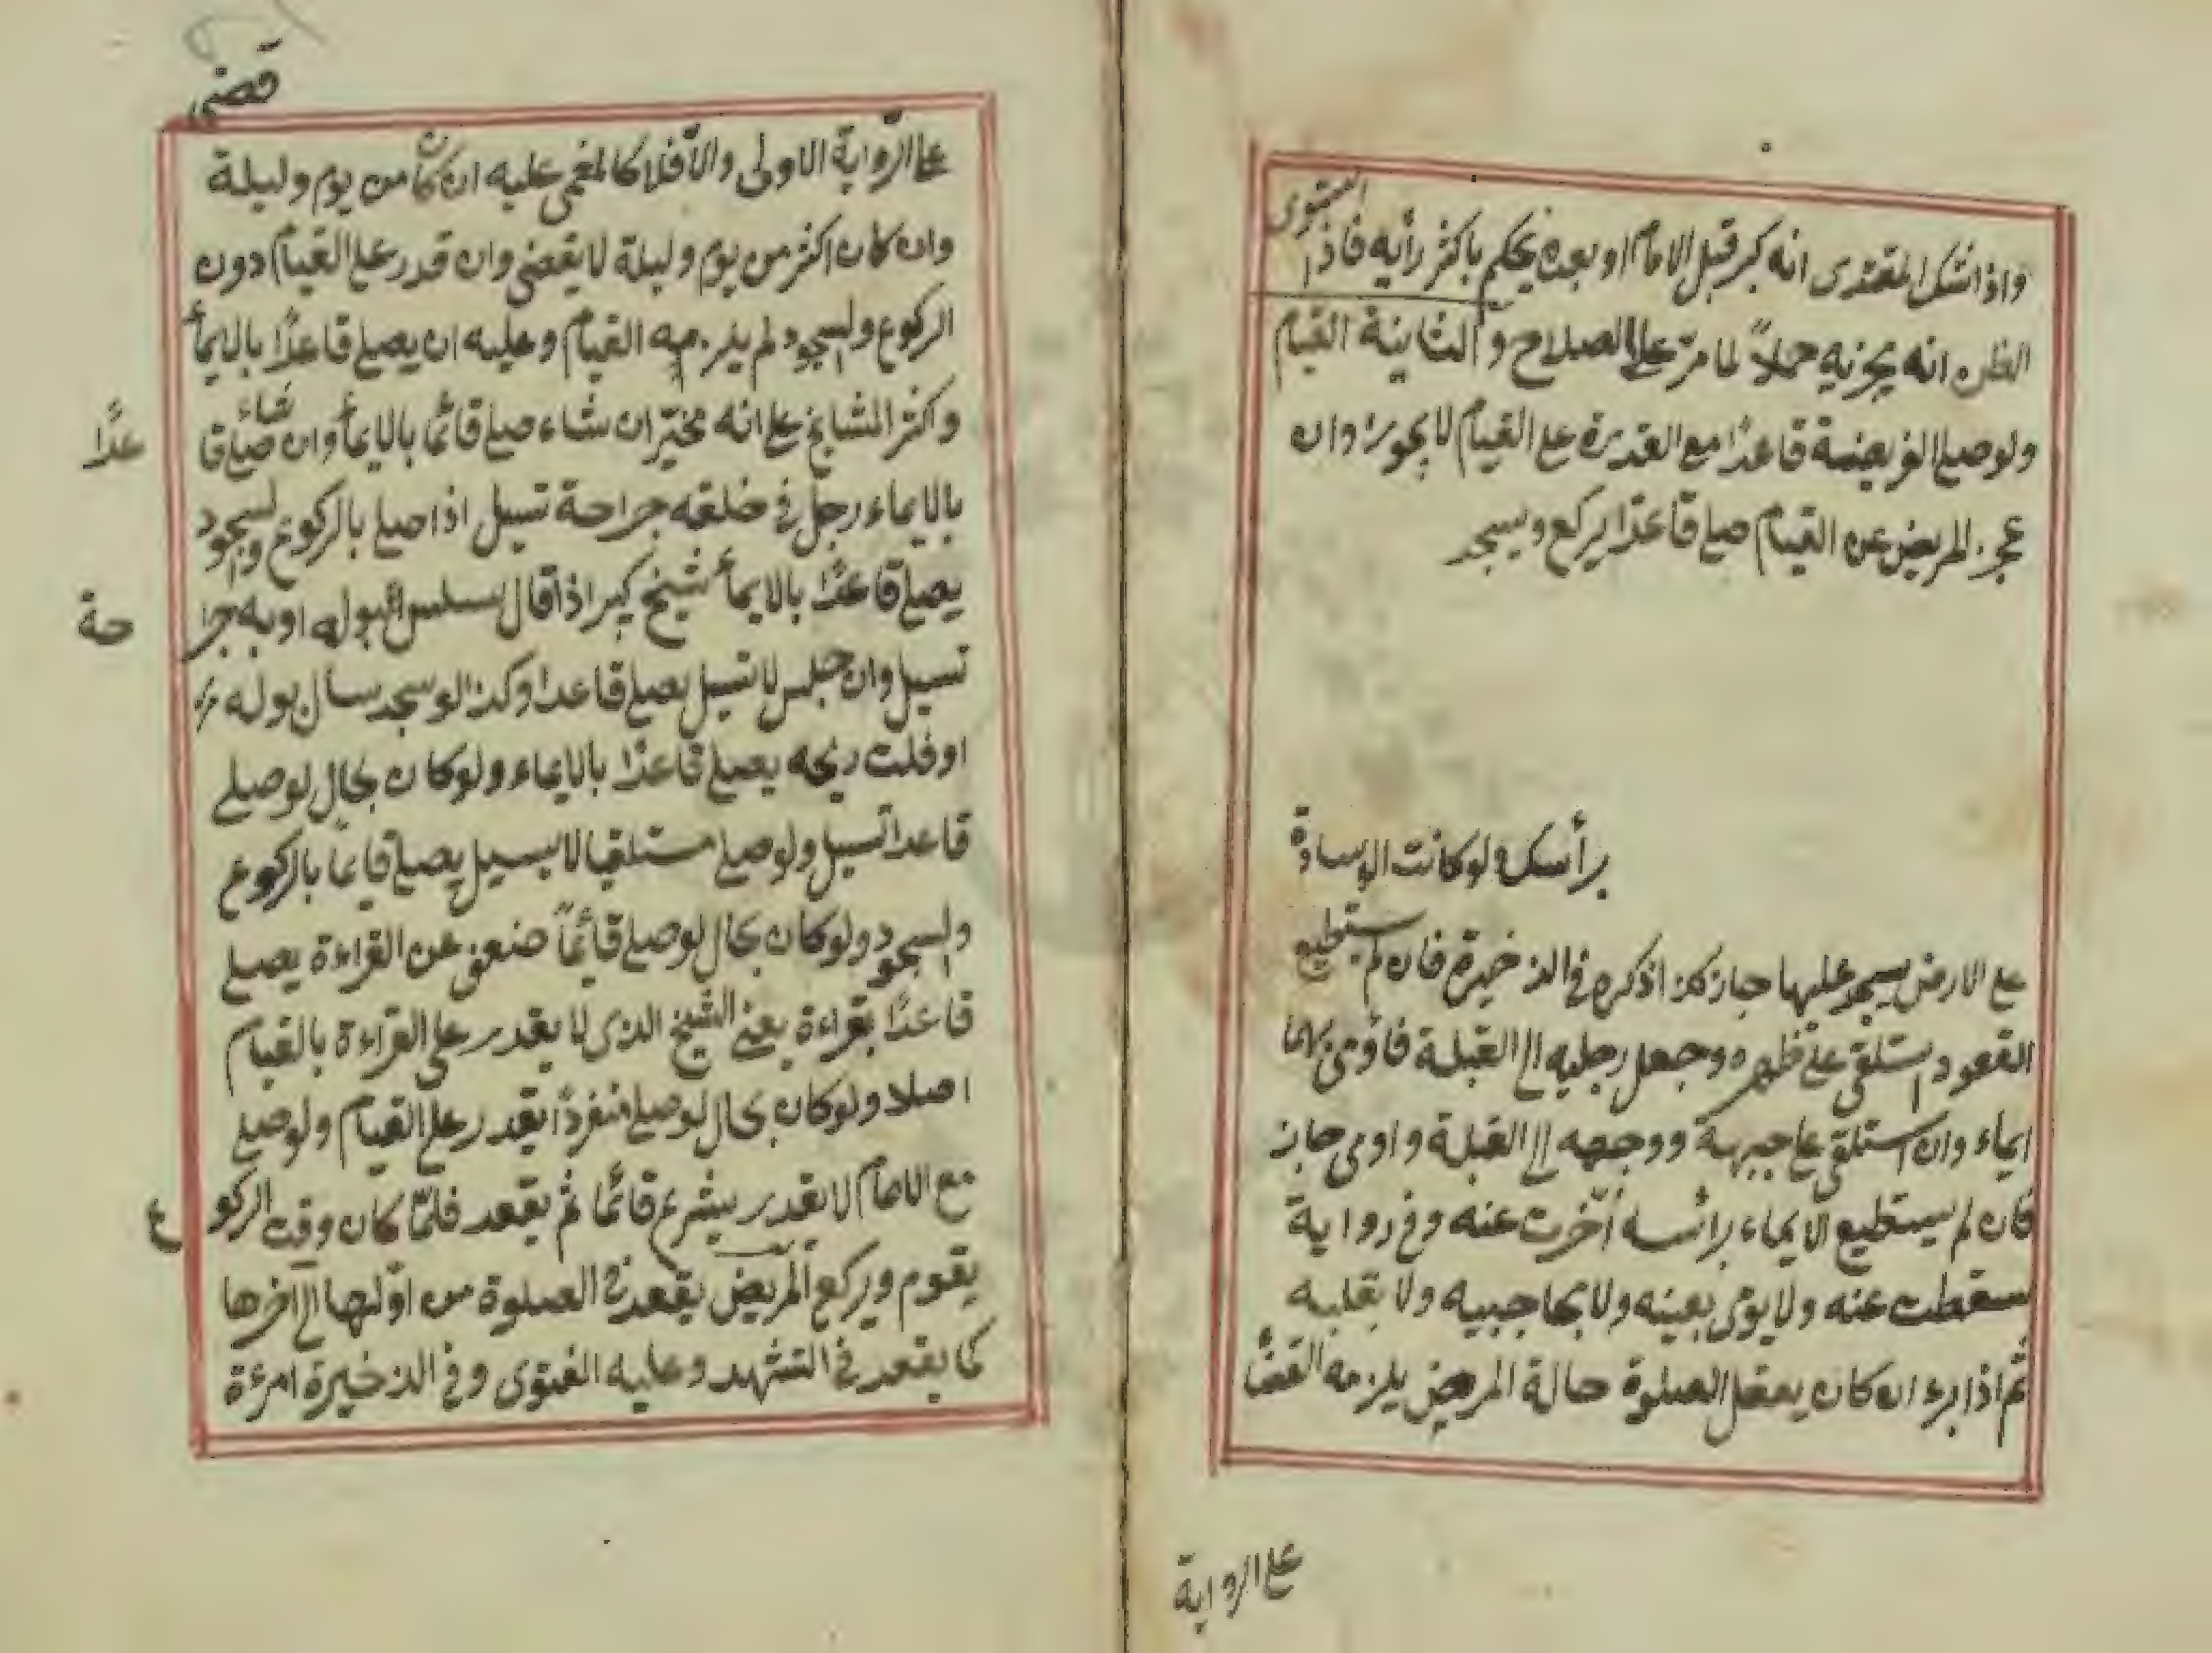 واذا شك المقتدى انه كبر قبل الامام او بعده يحكم باكثر رأيه فاذا استوى
الظن انه يجزيه حملاً لما مرّ على الصلاح والثانية القيام
ولو صلى الفريضة قاعدًا مع القدرة على القيام لا يجوز وان
عجز المريض عن القيام صلى قاعدًا يركع ويسجد
برأسك ولو كانت الوسادة
على الارض يسجد عليها جاز كذا ذكره فى الذخيرة فان لم يستطيع
القعود استلقى على ظهره وجعل رجليه الى القبلة فأومى بهما
ايماء وان استلقى على جبهة ووجهه الى القبلة واومى جاز
فان لم يستطيع الايماء برأسه أخّرت عنه وفى رواية
سقطت عنه ولا يومى بعينه ولا بحاجبيه ولا بقلبه
ثم اذا برء ان كان يعقل الصلوة حالة المريض يلزمه القضأ
على الرواية
قضى
على الرّواية الاولى والاّ فلا كالمغمى عليه ان كان من يوم وليلة
وان كان اكثر من يوم وليلة لا يقضى وان قدر على القيام دون
الركوع والسجود لم يلزمه القيام وعليه ان يصلى قاعدًا بالايمأ
واكثر المشايخ على انه مخيّر ان شاء صلى قائمًا بالايمأ وان شاء صلى قا
عدًا
بالايماء رجل فى حلقه جراحة تسيل اذا صلى بالركوع والسجود
يصلى قاعدًا بالايمأ شيخ كبير اذا قال سلس البوله او به جرا
حة
تسيل وان جلس لا تسيل يصلى قاعدا وكذا لو سجد سال بوله
او فلت ريحه يصلى قاعدًا بالايماء ولو كان بحال لو صلى
قاعدا تسيل ولو صلى مستلقيا لا يسيل يصلى قايمًا بالركوع
والسجود ولو كان بحال لو صلى قائمًا ضعف عن القراءة يصلى
قاعدًا بقراءة يعنى الشيخ الذى لا يقدر على القراءة بالقيام
اصلا ولو كان بحال لو صلى منفردًا يقدر على القيام ولو صلى
مع الامام لا يقدر يشرع قائمًا ثم يقعد فلمّا كان وقت الركو
ع
يقوم ويركع المريض يقعد فى الصلوة من اوّلها الى آخرها
كما يقعد فى التشهد وعليه الفتوى وفى الذخيرة امرءة